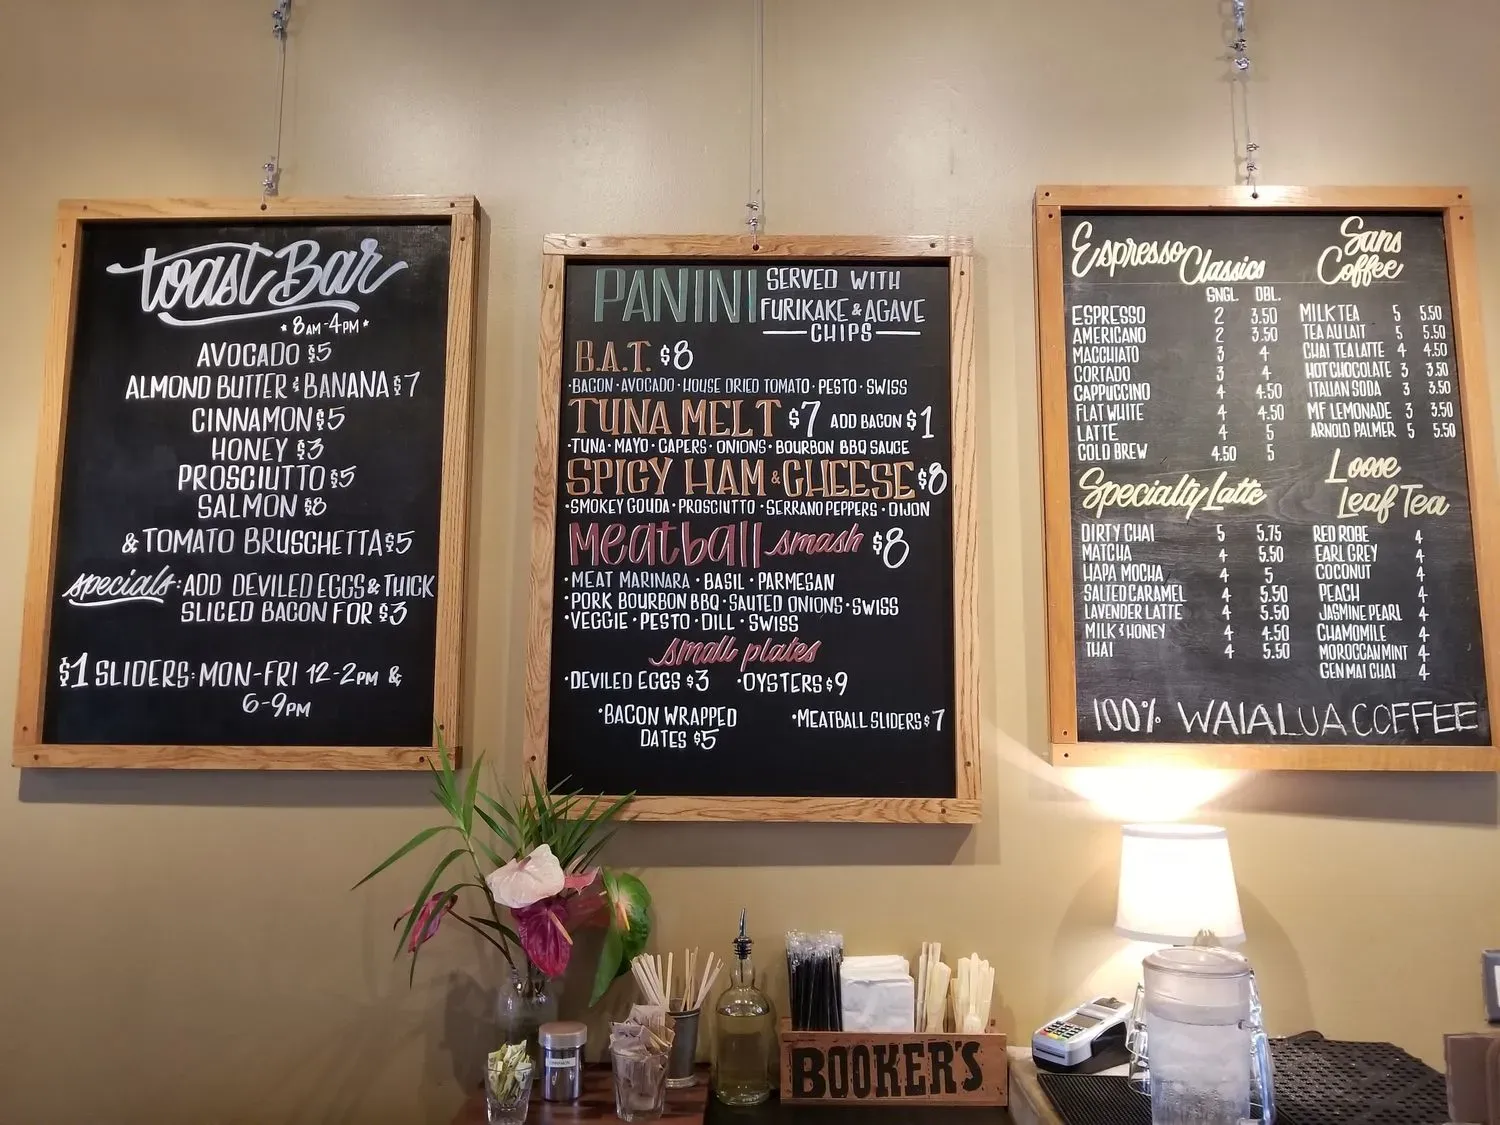 toast Bar
* 8AM-4PM *
AVOCADO $5
ALMOND BUTTER & BANANA $7
CINNAMON $5
HONEY $3
PROSCIUTTO $5
SALMON $8
& TOMATO BRUSCHETTA $5
specials: ADD DEVILED EGGS & THICK
SLICED BACON FOR $3
$1 SLIDERS: MON-FRI 12-2PM &
6-9PM
PANINI SERVED WITH
FURIKAKE & AGAVE
CHIPS
B.A.T. $8
·BACON·AVOCADO·HOUSE DRIED TOMATO·PESTO·SWISS
TUNA MELT $7 ADD BACON $1
·TUNA·MAYO·CAPERS·ONIONS·BOURBON BBQ SAUCE
SPICY HAM & CHEESE $8
·SMOKEY GOUDA·PROSCIUTTO·SERRANO PEPPERS·DIJON
Meatball smash $8
·MEAT MARINARA·BASIL·PARMESAN
·PORK BOURBON BBQ·SAUTED ONIONS·SWISS
·VEGGIE·PESTO·DILL·SWISS
small plates
·DEVILED EGGS $3 ·OYSTERS $9
·BACON WRAPPED
DATES $5
·MEATBALL SLIDERS $7
Espresso Classics
SNGL. DBL.
ESPRESSO 2 3.50
AMERICANO 2 3.50
MACCHIATO 3 4
CORTADO 3 4
CAPPUCCINO 4 4.50
FLAT WHITE 4 4.50
LATTE 4 5
COLD BREW 4.50 5
Specialty Latte
DIRTY CHAI 5 5.75
MATCHA 4 5.50
HAPA MOCHA 4 5
SALTED CARAMEL 4 5.50
LAVENDER LATTE 4 5.50
MILK & HONEY 4 4.50
THAI 4 5.50
Sans
Coffee
MILK TEA 5 5.50
TEA AU LAIT 5 5.50
CHAI TEA LATTE 4 4.50
HOT CHOCOLATE 3 3.50
ITALIAN SODA 3 3.50
MF LEMONADE 3 3.50
ARNOLD PALMER 5 5.50
Loose
Leaf Tea
RED ROBE 4
EARL GREY 4
COCONUT 4
PEACH 4
JASMINE PEARL 4
CHAMOMILE 4
MOROCCAN MINT 4
GEN MAI CHAI 4
100% WAIALUA COFFEE
BOOKER'S